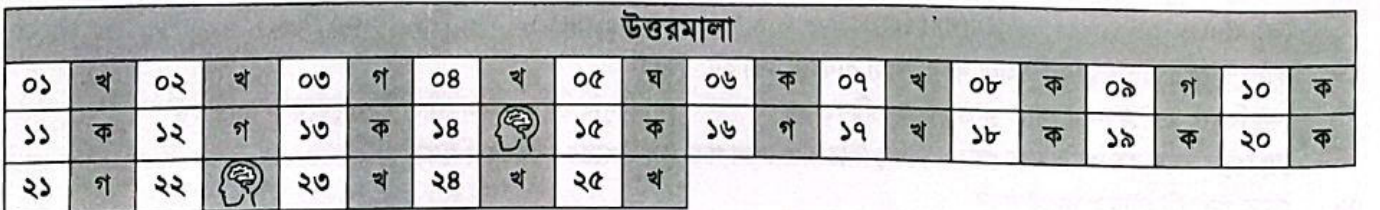 উত্তরমালা
০১ খ ০২ খ ০৩ গ ০৪ খ ০৫ ঘ ০৬ ক ০৭ খ ০৮ ক ০৯ গ ১০ ক
১১ ক ১২ গ ১৩ ক ১৪ ১৫ ক ১৬ গ ১৭ খ ১৮ ক ১৯ ক ২০ ক
২১ গ ২২ ২৩ খ ২৪ খ ২৫ খ